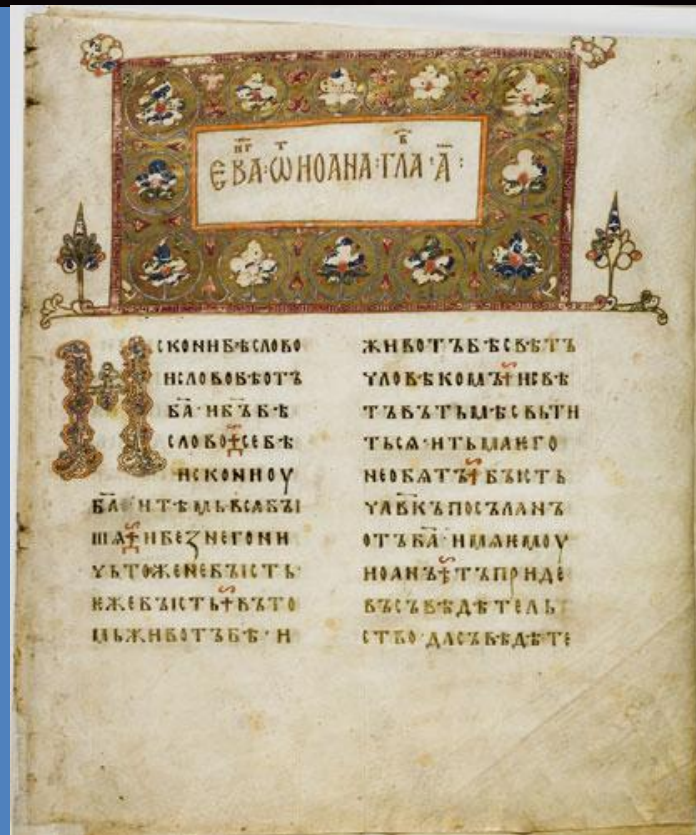 ЕВА҃Г · Ѿ ИОАНА · ГЛА҃В · А҃ :
ИСКОНИ БѢ СЛОВО
И СЛОВО БѢ ОТЪ
Б҃А · И Б҃Ъ БѢ
СЛОВО · СЕ БѢ
ИСКОНИ ОУ
Б҃А · И ТѢМЬ ВСѦ БЫ
ШѦ · И БЕЗ НЕГО НИ
ЧЬТОЖЕ НЕ БЪІСТЬ ·
ЕЖЕ БЪІСТЬ · ВЪ ТО
МЬ ЖИВОТЪ БѢ · И
ЖИВОТЪ БѢ СВѢТЪ
ЧЛОВѢКОМЪ · И СВѢ
ТЪ ВЪ ТЬМѢ СВЬТИ
ТЬСѦ · И ТЬМА ѤГО
НЕ ОБѦТЪ · БЪІСТЬ
ЧЛ҃ВКЪ ПОСЪЛАНЪ
ОТЪ Б҃А · ИМѦ ѤМОУ
ИОАНЪ · ТЪ ПРИДЕ
ВЪ СЪВѢДѢТЕЛЬ
СТВО · ДА СЪВѢДѢТЕ